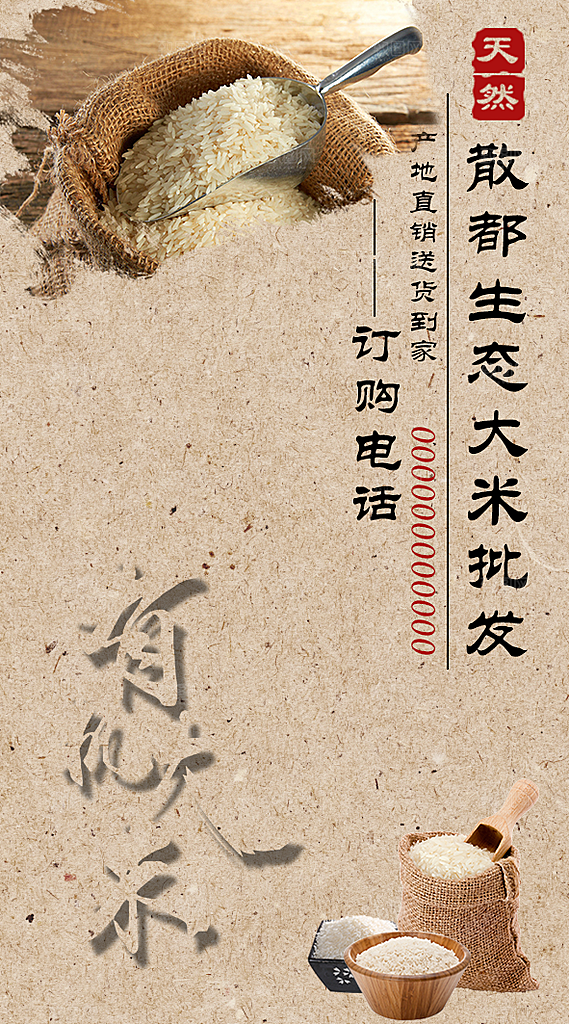 天然
散都生态大米批发
产地直销送货到家
00000000000
订购电话
有机大米